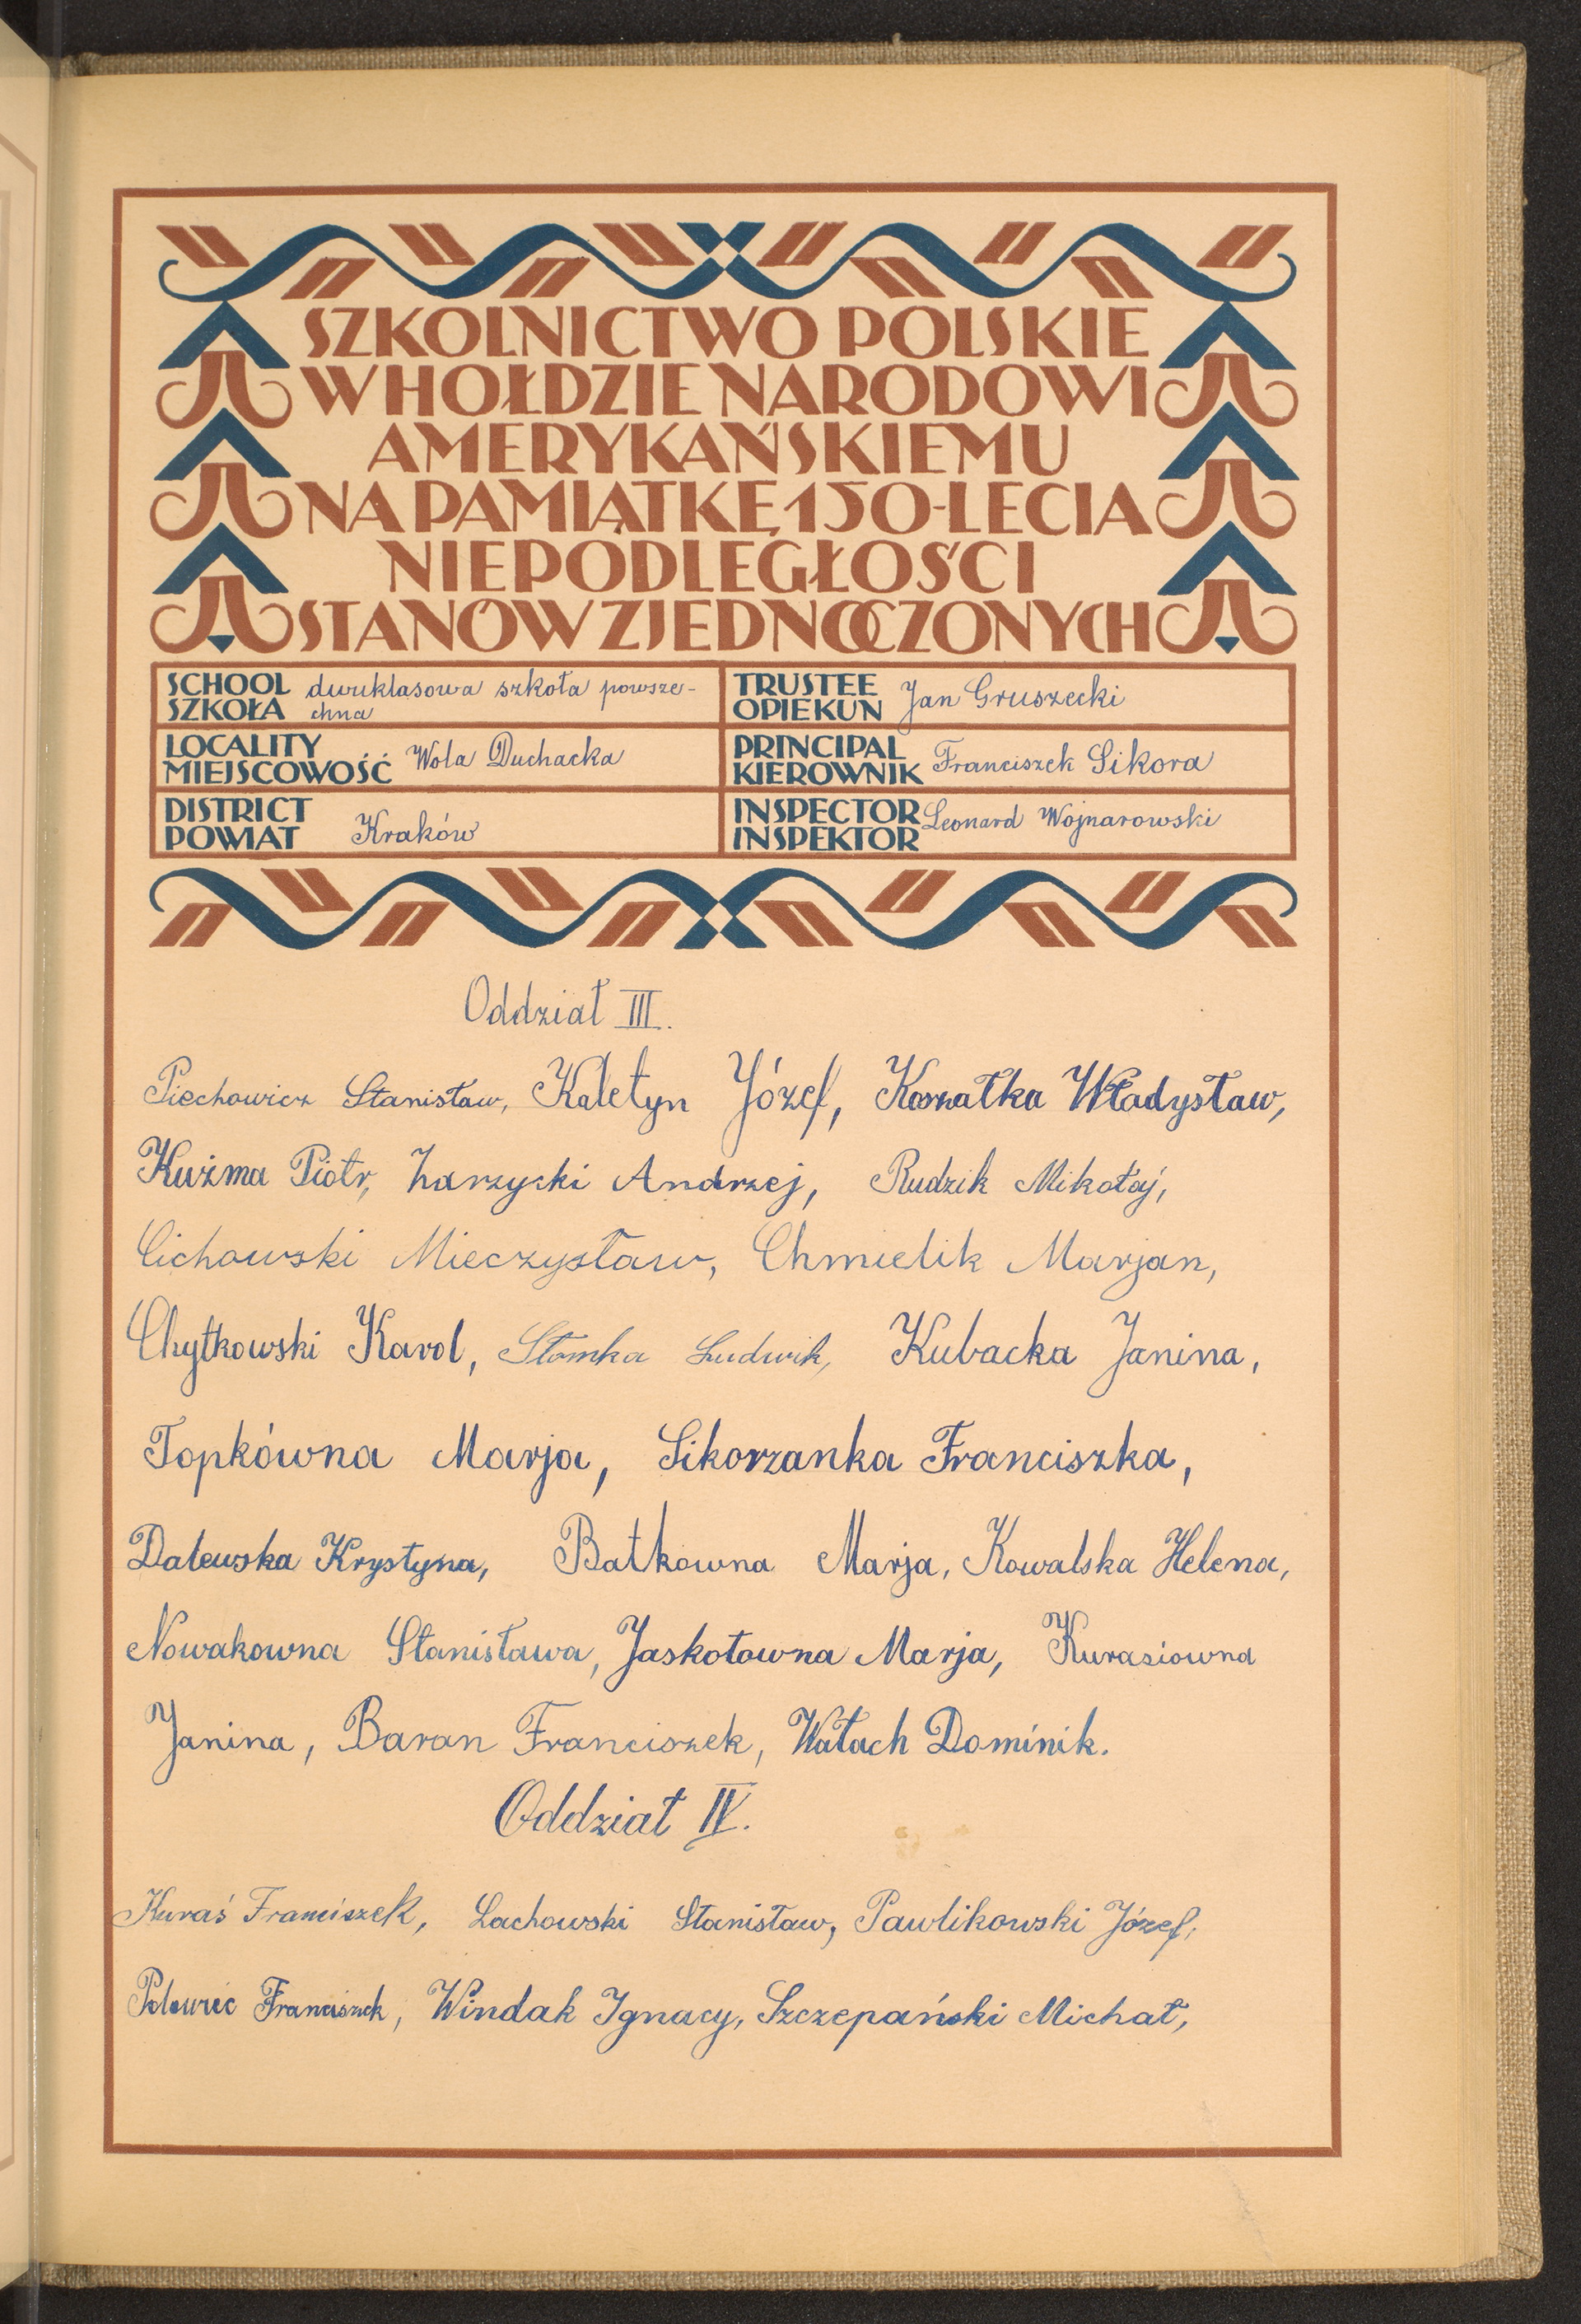 SZKOLNICTWO POLSKIE
W HOŁDZIE NARODOWI
AMERYKAŃSKIEMU
NA PAMIĄTKĘ 150-LECIA
NIEPODLEGŁOŚCI
STANÓW ZJEDNOCZONYCH
SCHOOL
SZKOŁA
dwuklasowa szkoła powsze-
chna
TRUSTEE
OPIEKUN
Jan Gruszecki
LOCALITY
MIEJSCOWOŚĆ
Wola Duchacka
PRINCIPAL
KIEROWNIK
Franciszek Sikora
DISTRICT
POWIAT
Kraków
INSPECTOR
INSPEKTOR
Leonard Wojnarowski
Oddział III.
Piechowicz Stanisław, Kaletyn Józef, Koszałka Władysław,
Kuźma Piotr, Zarzycki Andrzej, Rudzik Mikołaj,
Cichowski Mieczysław, Chmielik Marjan,
Chytkowski Karol, Słomka Ludwik, Kubacka Janina,
Topkówna Marja, Sikorzanka Franciszka,
Dalewska Krystyna, Batkowna Marja, Kowalska Helena,
Nowakowna Stanisława, Jaskołowna Marja, Kurasiowna
Janina, Baran Franciszek, Wałach Dominik.
Oddział IV.
Kuraś Franciszek, Lachowski Stanisław, Pawlikowski Józef,
Polowiec Franciszek, Windak Ignacy, Szczepański Michał,